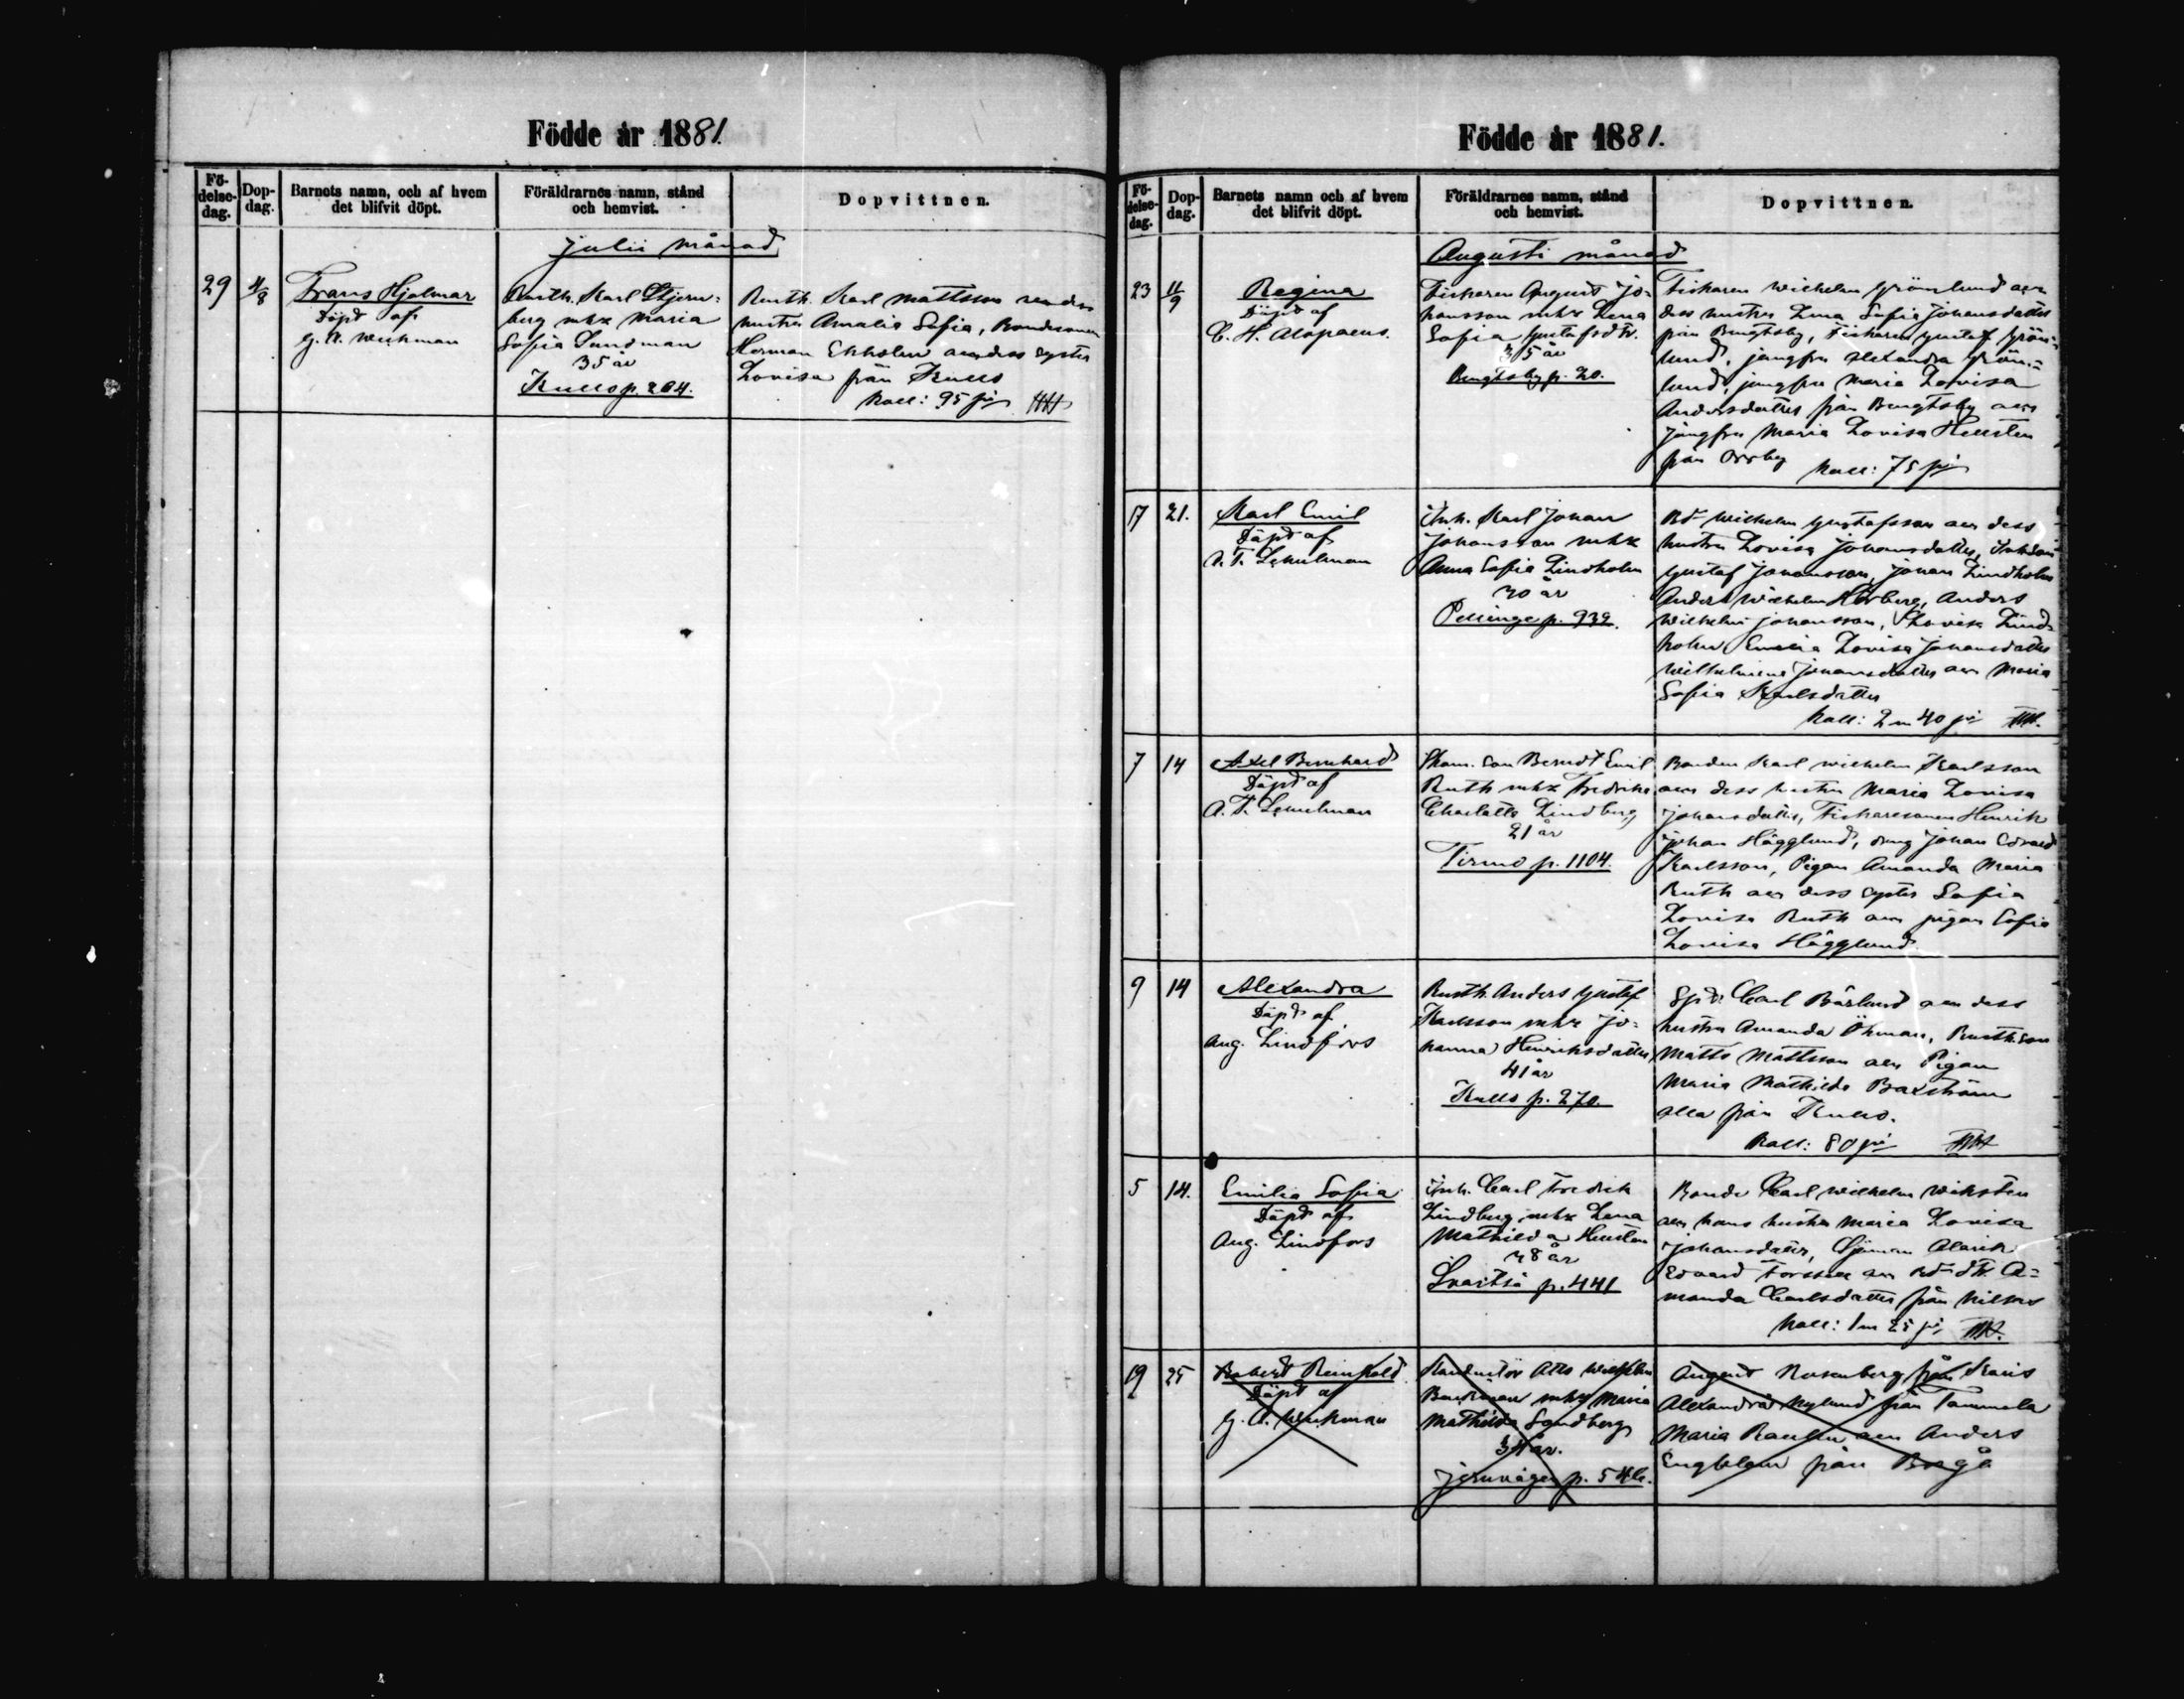 Födde år 1881.
Fö-
delse-
dag.
Dop-
dag.
Barnets namn, och af hvem
det blifvit döpt.
Föräldrarnes namn, stånd
och hemvist.
Dopvittnen.
Julii månad
29
4/8
Frans Hjalmar
Döpt af
G. A. Weckman
Rusth. Karl Stjern-
berg mhx Maria
Sofia Sundman
35 år
Kullo p. 264.
Rusth. Karl Mattsson
hustru Amalia Sofia, Bondesonen
Herman Ekholm dess syster
Lovisa från Kullo
Koll: 95 pi
Födde år 1881.
Fö-
delse-
dag.
Dop-
dag.
Barnets namn och af hvem
det blifvit döpt.
Föräldrarnes namn, stånd
och hemvist.
Dopvittnen.
Augusti månad
23
11/9
Regina
Döpt af
C. H. Alopaeus.
Fiskaren August Jo-
hansson mhx Lena
Sofia Gustafsdtr.
35 år
Bengtsby p. 20.
Fiskaren Wilhelm Grönlund
dess hustru Lena Sofia Johansdotter
från Bengtsby, Fiskaren Gustaf Grön-
lund, jungfru Alexandra Grön-
lund, jungfru Maria Lovisa
Andersdotter från Bengtsby
jungfru Maria Lovisa Hellsten
från Orrby Koll: 75 pi
17
21.
Karl Emil
Döpt af
A. T. Schulman
Inh. Karl Johan
Johansson mhx
Anna Sofia Lindholm
30 år
Pellinge p. 939.
Bd Wilhelm Gustafsson dess
hustru Lovisa Johansdotter,
Gustaf Johansson, Johan Lindholm
Anders Wilhelm, Anders
Wilhelm Johansson, Lovisa Lind-
holm Emilia Lovisa Johansdotter
Wilhelmina Johansdotter Maria
Sofia Karlsdotter
Koll: 2 m 40 pi
7
14
Axel Bernhard
Döpt af
A. T. Schulman
Son Berndt Emil
Ruth mhx Fredrika
Charlotta Lindberg
21 år
Tirmo p. 1104.
Bonden Karl Wilhelm Karlsson
dess hustru Maria Lovisa
Johansdotter, Fiskaresonen Henrik
Johan Hägglund, dreng Johan Edvard
Karlsson, Pigan Amanda Maria
Ruth dess syster Sofia
Lovisa Ruth pigan Sofia
Lovisa Hägglund
9
14
Alexandra
Döpt af
Aug. Lindfors
Rusth. Anders Gustaf
Karlsson mhx Jo-
hanna Henriksdotter
41 år
Kullo p. 270.
Carl Bärlund dess
hustru Amanda Öhman, Rusth.son
Matts Mattsson Pigan
Maria Mathilda Baxström
alla från Kullo.
Koll: 80 pi
5
14.
Emilia Sofia
Döpt af
Aug. Lindfors
Inh. Carl Fredrik
Lindberg mhx Lena
Mathilda Hellsten
38 år
Svartså p. 441
Bonde Carl Wilhelm Wiksten
hans hustru Maria Lovisa
Johansdotter, Sjöman Alarik
Edvard Forssell Bd dtr. A-
manda Carlsdotter från Nilsas
Koll: 1 m 25 pi
19
25
Robert Reinhold
Döpt af
G. A. Weckman
Konduktör Otto Wilhelm
mhx Maria
Mathilda Sandberg
34 år.
Jernvägen p.
August Rosenberg från Karis
Alexandra Nylund från Tammela
Maria Anders
Engblom från Borgå